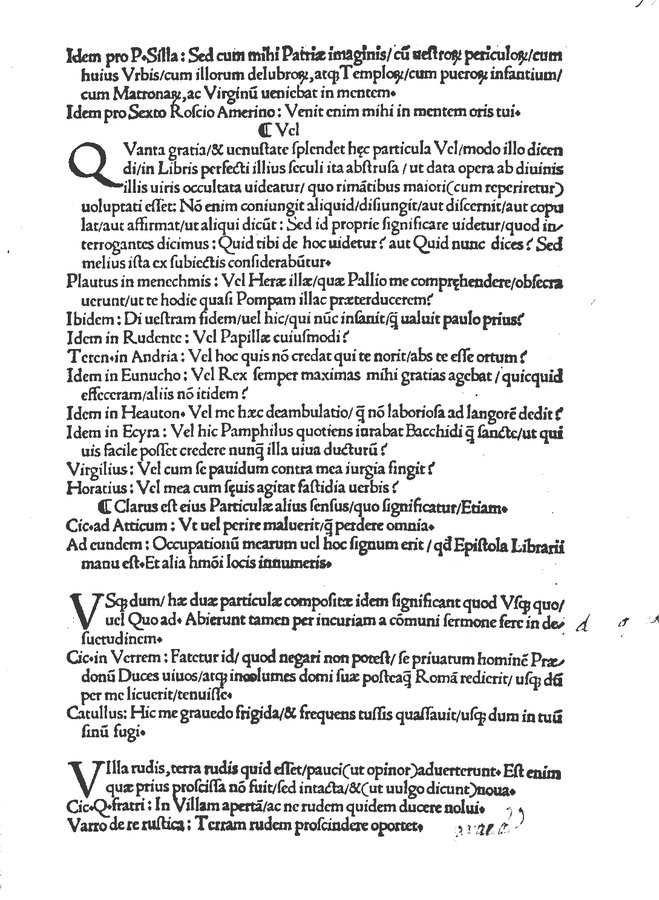 Idem pro P.Silla: Sed cum mihi Patriæ imaginis/ cũ uestroꝝ periculoꝝ/cum
huius Vrbis/cum illorum delubroꝝ,atqꝫ Temploꝝ/cum pueroꝝ infantium/
cum Matronaꝝ,ac Virginũ ueniebat in mentem.
Idem pro Sexto Roscio Amerino: Venit enim mihi in mentem oris tui.
¶ Vel
QVanta gratia/& uenustate splendet hęc particula Vel/modo illo dicen
di/in Libris perfecti illius seculi ita abstrusa / ut data opera ab diuinis
illis uiris occultata uideatur/ quo rimãtibus maiori(cum reperiretur)
uoluptati esset: Nõ enim coniungit aliquid/disiungit/aut discernit/aut copu
lat/aut affirmat/ut aliqui dicũt: Sed id proprie significare uidetur/quod in⸗
terrogantes dicimus: Quid tibi de hoc uidetur? aut Quid nunc dices? Sed
melius ista ex subiectis considerabũtur.
Plautus in menechmis: Vel Heræ illæ/quæ Pallio me compręhendere/obsecra
uerunt/ut te hodie quasi Pompam illac præterducerem?
Ibidem: Di uestram fidem/uel hic/qui nũc insanit/q̃ ualuit paulo prius?
Idem in Rudente: Vel Papillæ cuiusmodi?
Teren.in Andria: Vel hoc quis nõ credat qui te norit/abs te esse ortum?
Idem in Eunucho: Vel Rex semper maximas mihi gratias agebat / quicquid
effeceram/aliis nõ itidem?
Idem in Heauton. Vel me hæc deambulatio/ q̃ nõ laboriosa ad langorẽ dedit?
Idem in Ecyra: Vel hic Pamphilus quotiens iurabat Bacchidi q̃ sancte/ut qui
uis facile posset credere nunq̃ illa uiua ducturũ?
Virgilius: Vel cum se pauidum contra mea iurgia fingit?
Horatius: Vel mea cum sęuis agitat fastidia uerbis?
¶ Clarus est eius Particulæ alius sensus/quo significatur/Etiam.
Cic.ad Atticum: Vt uel perire maluerit/q̃ perdere omnia.
Ad eundem: Occupationũ mearum uel hoc signum erit / qđ Epistola Librarii
manu est.Et alia hmõi locis innumeris.
VSqꝫ dum/ hæ duæ particulæ compositæ idem significant quod Vsqꝫ quo/
uel Quo ad. Abierunt tamen per incuriam a cõmuni sermone fere in de⸗
suetudinem.
Cic.in Verrem: Fatetur id/ quod negari non potest/ se priuatum hominẽ Præ⸗
donũ Duces uiuos/atqꝫ incolumes domi suæ posteaq̃ Romã redierit/ usqꝫ dũ
per me licuerit/tenuisse.
Catullus: Hic me grauedo frigida/& frequens tussis quassauit/usqꝫ dum in tuũ
sinũ fugi.
VIlla rudis,terra rudis quid esset/pauci(ut opinor)aduerterunt. Est enim
quæ prius proscissa nõ fuit/sed intacta/&(ut uulgo dicunt)noua.
Cic.Q.fratri: In Villam apertã/ac ne rudem quidem ducere nolui.
Varro de re rustica: Terram rudem proscindere oportet.